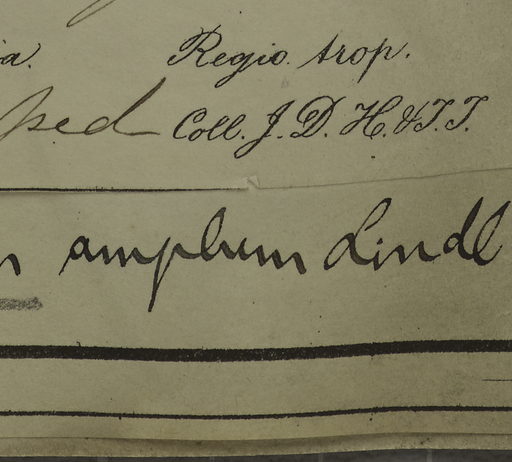 Regio trop.
Coll. J. D. H. & T. T.
amplum Lindl